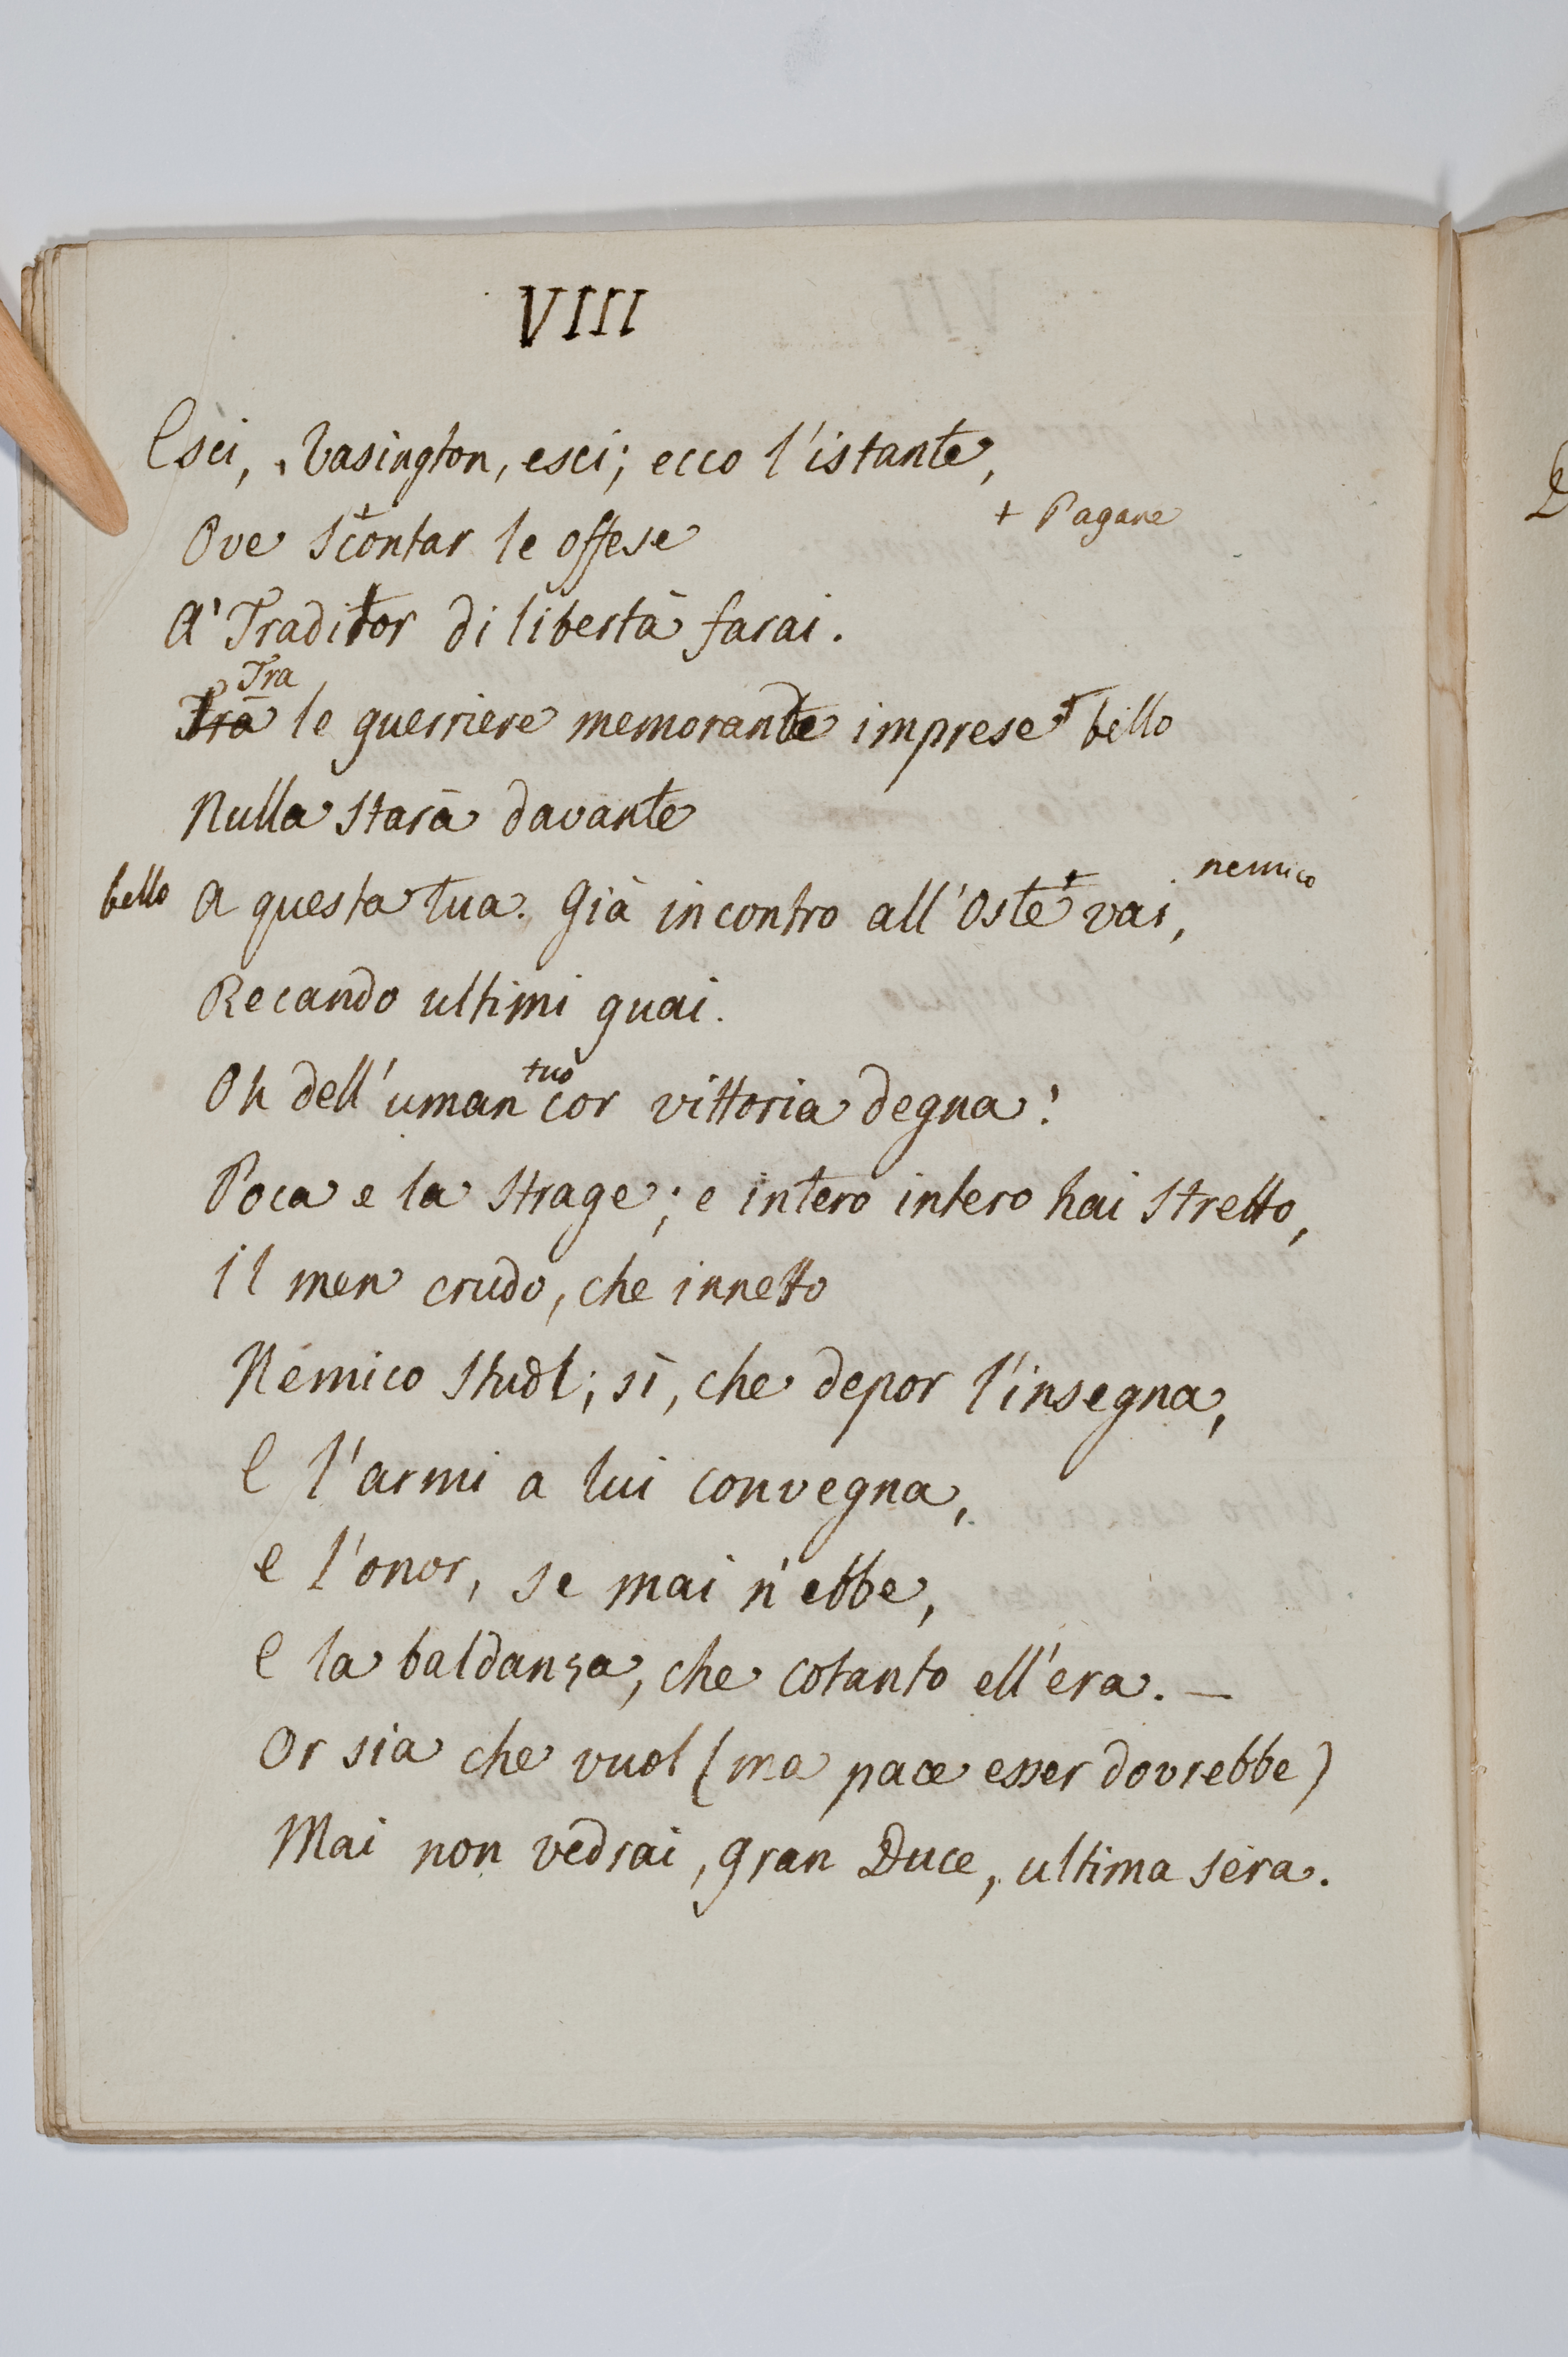 VIII
Esci, Vasington, esci; ecco l'istante,
+ Pagare
Ove S+contar le offese
A' Traditor di libertà farai.
Tra
Trà le guerriere memorande imprese + bello
Nulla starà davante
nemico
bello A questa tua. Già incontro all'Oste + vai,
Recando ultimi guai.
tuo
Oh dell'uman cor vittoria degna!
Poca e la strage; e intero intero hai stretto,
Il men crudo, che innetto
Nemico stuol; sì, che depor l'insegna,
E l'armi a lui convegna,
e l'onor, se mai n'ebbe,
E la baldanza, che cotanto ell'era. —
Or sia che vuol (ma pace esser dovrebbe)
Mai non vedrai, gran Duce, ultima sera.